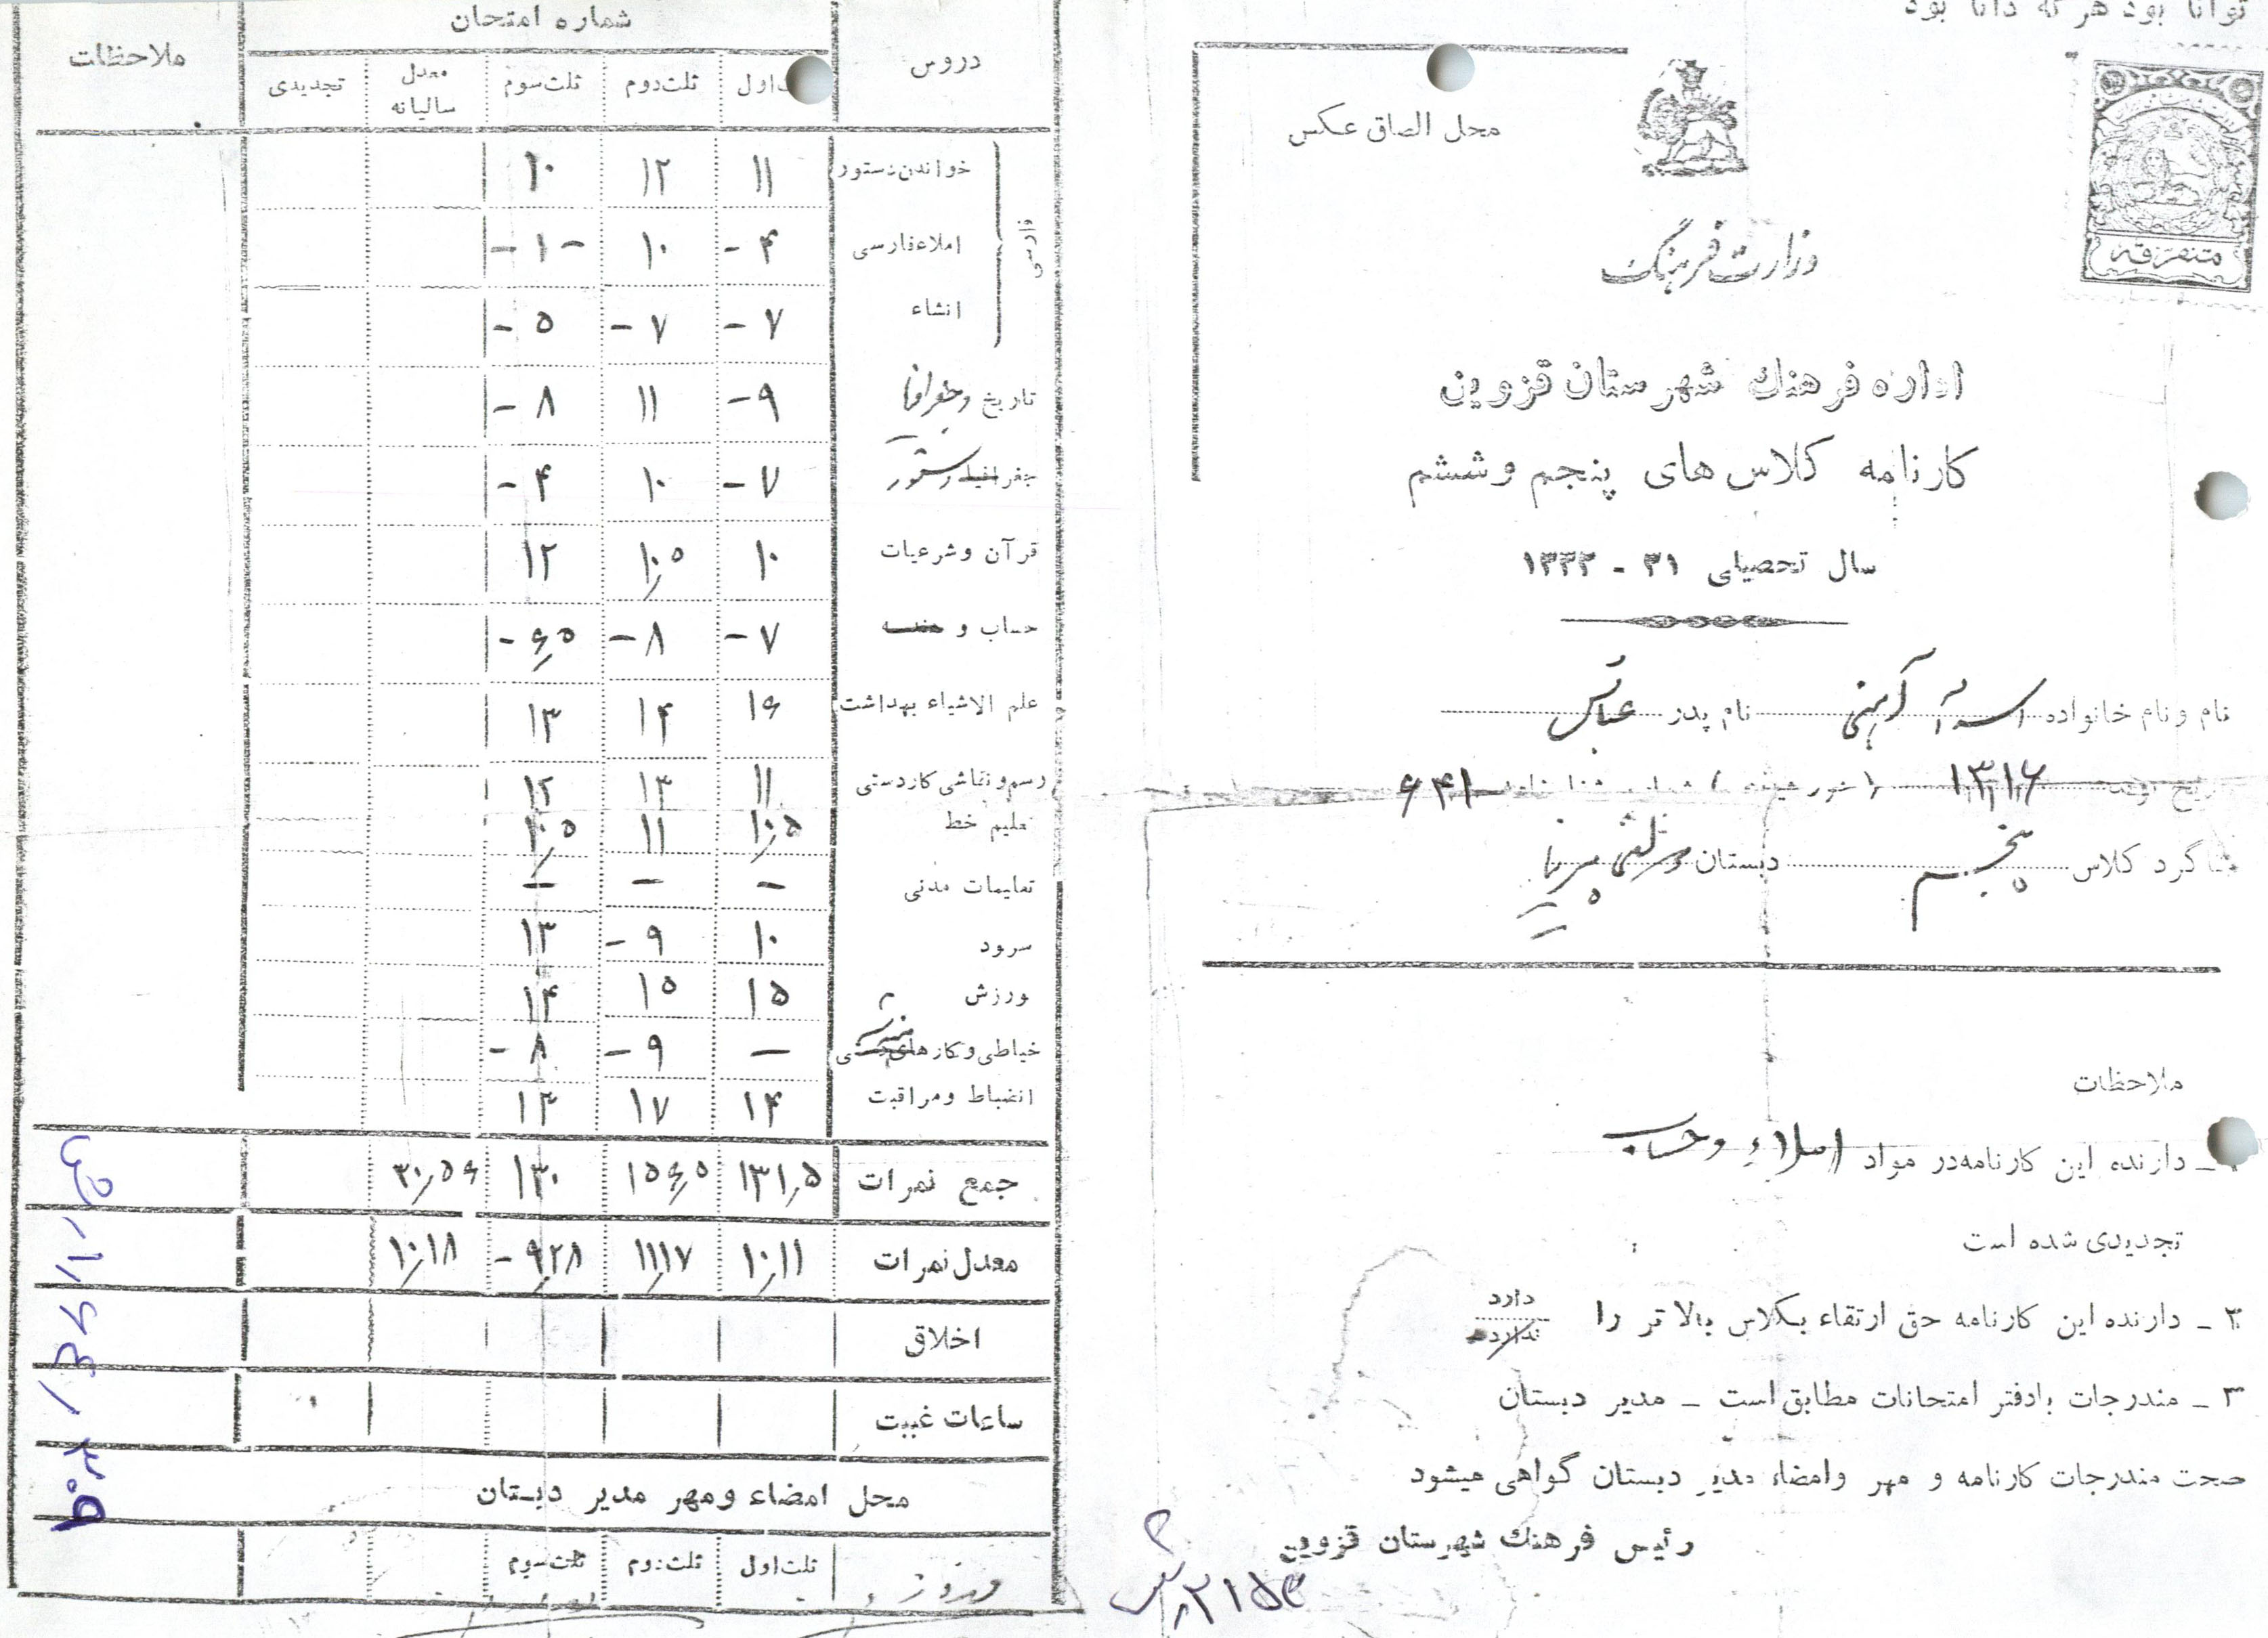 توانا بود هر که دانا بود
متفرقه
محل الصاق عکس
وزارت فرهنگ
اداره فرهنك شهرستان قزوین
کارنامه کلاس های پنجم و ششم
سال تحصیلی ۳۱ - ۱۳۳۲
نام و نام خانواده اسدا آهنی نام پدر عباس
تاریخ تولد ۱۳۱۶ (خورشیدی) شماره شناسنامه ۶۴۱
شاگرد کلاس پنجم دبستان
ملاحظات
۱ـ دارنده این کارنامه در مواد املاء و حساب
تجدیدی شده است
۲ ـ دارنده این کارنامه حق ارتقاء بکلاس بالاتر را دارد ندارد
۳ ـ مندرجات بادفتر امتحانات مطابق است ـ مدیر دبستان
صحت مندرجات کارنامه و مهر وامضاء مدیر دبستان گواهی میشود
رئیس فرهنك شهرستان قزوین
شماره امتحان
دروس ثلث اول ثلث دوم ثلث سوم معدل سالیانه تجدیدی ملاحظات
فارسی
خواندن دستور ۱۱ ۱۲ ۱۰
املاء فارسی ۴ - ۱۰ - ۱ -
انشاء ۷ - ۷ - ۵ -
تاریخ و جغرافیا ۹ - ۱۱ ۸ -
جغرافیا دستور ۷ - ۱۰ ۴ -
قرآن و شرعیات ۱۰ ۱۰٫۵ ۱۲
حساب و هندسه ۷ - ۸ - ۶٫۵ -
علم الاشیاء بهداشت ۱۶ ۱۴ ۱۳
رسم و نقاشی کاردستی ۱۱ ۱۳ ۱۲
تعلیم خط ۱۰٫۵ ۱۱ ۱۰٫۵
تعلیمات مدنی - - -
سرود ۱۰ ۹ - ۱۳
ورزش ۱۵ ۱۵ ۱۴
خیاطی و کارهای دستی - ۹ - ۸ -
انضباط و مراقبت ۱۴ ۱۷ ۱۳
جمع نمرات ۱۳۱٫۵ ۱۵۶٫۵ ۱۳۰ ۳۰٫۵۶
معدل نمرات ۱۰٫۱۱ ۱۱٫۱۷ ۹٫۲۸ - ۱۰٫۱۸
اخلاق
ساعات غیبت
محل امضاء و مهر مدیر دبستان
ثلث اول ثلث دوم ثلث سوم